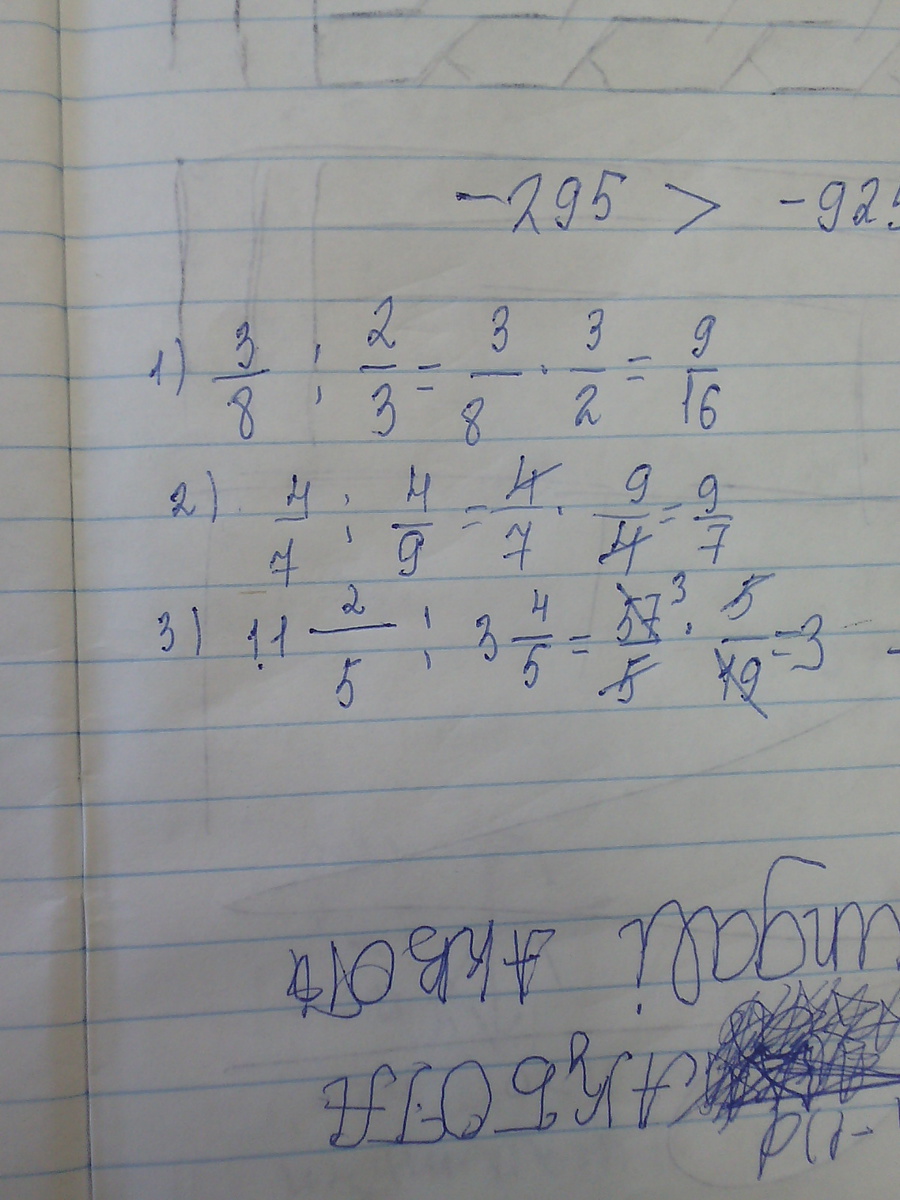 -295 > -925
1) 3/8 : 2/3 = 3/8 · 3/2 = 9/16
2) 4/7 : 4/9 = 4/7 · 9/4 = 9/7
3) 11 2/5 : 3 4/5 = 57³/5 · 5/19 = 3
АКБОТА